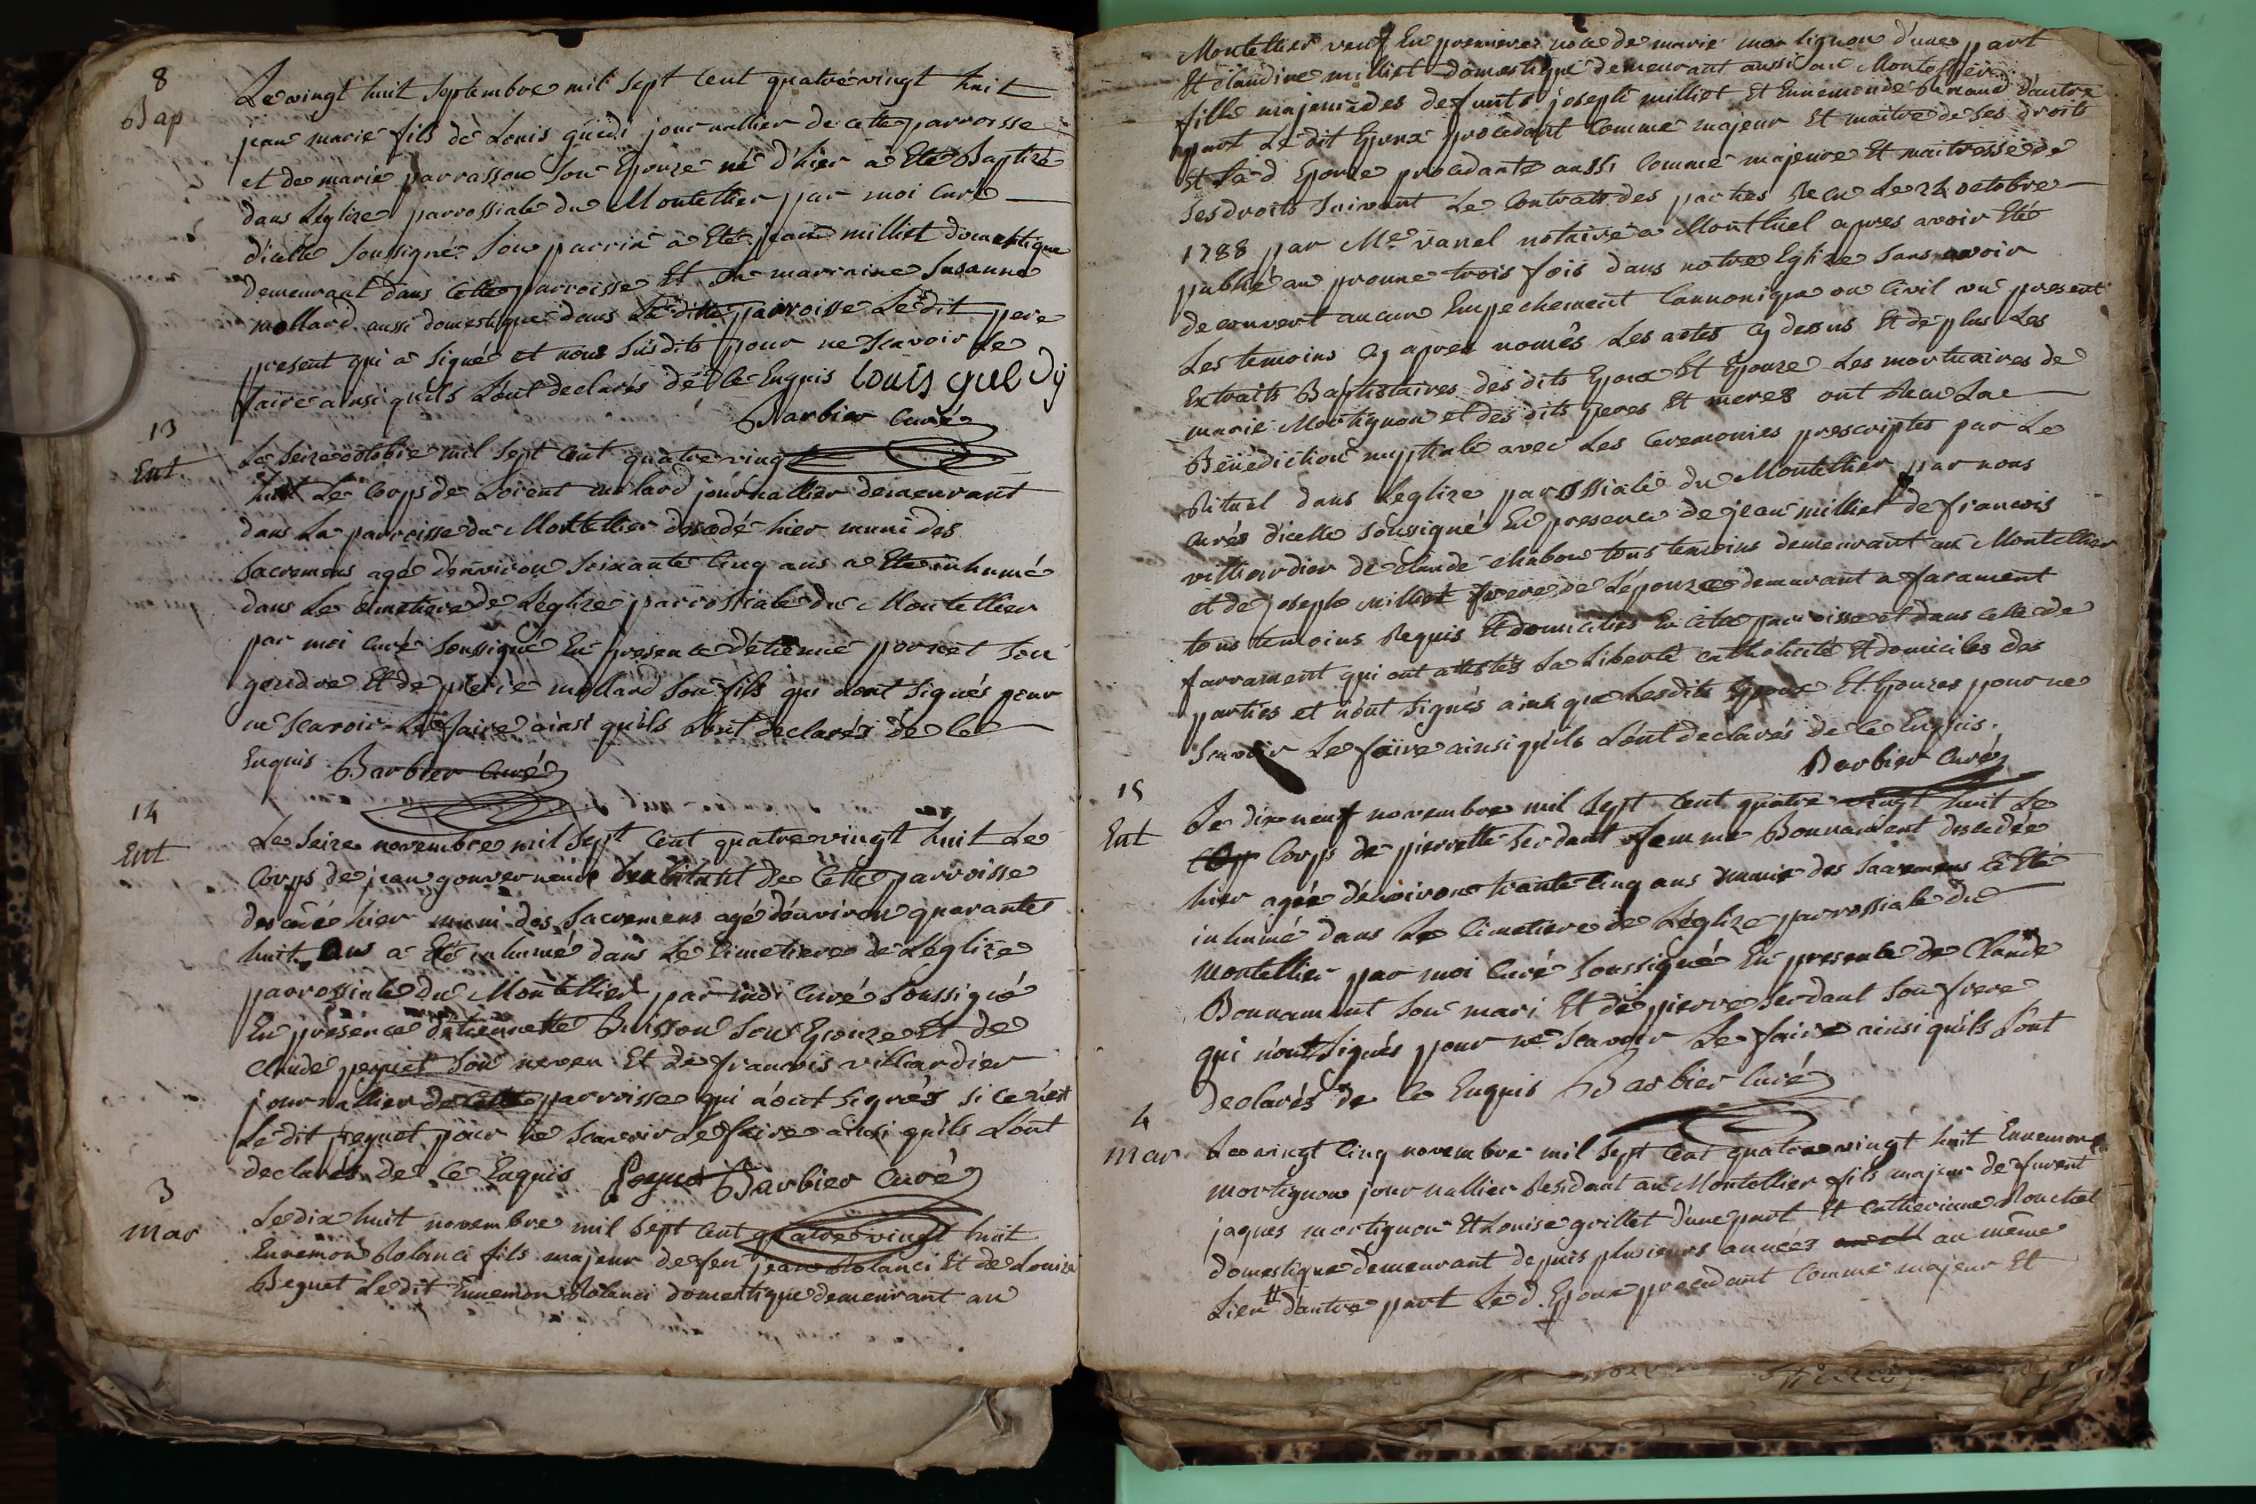 8
Bap
Le vingt huit septembre mil sept cent quatre vingt huit
jean marie fils de Louis guedi journallier de cette parroisse
et de marie parrasson son Epouze né d'hier a Eté Baptizé
dans L'églize parrossiale du Montellier par moi curé
d'icelle soussigné. Son parrin a Eté jean milliet domestique
demeurant dans cette parroisse Et sa marraine Susanne
mollard aussi domestique dans La ditte parroisse Le dit pere
present qui a signé et nous susdits pour ne scavoir Le
faire ainsi quils L'ont declarés de ce Enquis Louis guedy
Barbier curé
13
Ent
Le seize octobre mil sept cent quatre vingt
huit Le Corps de Lorent molard journallier demeurant
dans La parroisse du Montellier decedé hier muni des
sacremens agé d'environ soixante cinq ans a Eté inhumé
dans Le cimetiere de L'églize parrossiale du Montellier
par moi curé soussigné En presence d'étienne pernet son
gendre Et de pierre mollard son fils qui n'ont signés pour
ne scavoir Le faire ainsi quils L'ont declarés de ce
Enquis Barbier Curé
14
Ent
Le seize novembre mil sept cent quatre vingt huit Le
Corps de jean gouverneur habitant de cette parroisse
decedé hier muni des sacremens agé d'environ quarante
huit ans a Eté inhumé dans Le cimetiere de L'églize
parrossiale du Montellier par moi Curé soussigné
En presence d'étiennette Buisson son Epouze Et de
Claude peguet son neveu Et de francois villiardier
journallier de cette parroisse qui n'ont signés si ce n'est
Le dit peguet pour ne scavoir Le faire ainsi quils L'ont
declarés de ce Enquis Peguet Barbier Curé
3
Mar
Le dix huit novembre mil sept cent quatre vingt huit
Ennemon Rolanci fils majeur de feu jean Rolanci Et de Louize
Beguet Le dit Ennemon Rolanci domestique demeurant au
Montellier veuf En premiere noce de marie mortignon d'une part
Et claudine milliet domestique demeurant aussi au Montellier
fille majeure des defunts joseph milliet Et Ennemonde Renaud d'autre
part Le dit Epoux procedant Comme majeur Et maitre de ses droits
Et La d Epouze procedante aussi Comme majeure Et maitresse de
ses droits suivant Le Contrat des parties Recu Le 24 octobre
1788 par Me vanel notaire a Montluel apres avoir Eté
publié au pronne trois fois dans notre Eglize sans avoir
decouvert aucun Empechement Cannonique ou Civil vu present
Les temoins cy apres només Les actes cy dessus Et de plus Les
Extraits Baptistaires des dits Epoux Et Epouze Les mortuaires de
marie Mortignon et des dits peres Et meres ont Recu La
Bénédiction nuptiale avec Les Ceremonies prescriptes par Le
Rituel dans L'eglize parossiale du Montellier par nous
curés d'icelle soussigné En presence de jean milliet de francois
villiardier de claude chabou tous temoins demeurant au Montellier
et de joseph milliet frere de L'épouze demeurant a faramant
tous temoins Requis Et domiciliés En cette parroisse et dans celle de
farrament qui ont attestés La Liberté catholicité Et domiciles des
parties et n'ont signés ainsi que Lesdits Epoux Et Epouzes pour ne
scavoir Le faire ainsi quils L'ont declarés de ce Enquis.
Barbier Curé
15
Ent
Le dix neuf novembre mil sept cent quatre vingt huit Le
Corps de pierrette serdant femme Bonnament decedée
hier agée d'environ trante cinq ans munie des sacremens a Eté
inhumé dans Le Cimetiere de L'églize parrossiale du
Montellier par moi Curé soussigné En presence de Claude
Bonnament son mari Et de pierre serdant son frere
qui n'ont signés pour ne scavoir Le faire ainsi quils L'ont
declarés de ce Enquis Barbier Curé
4
Mar
Le vingt cinq novembre mil sept cent quatre vingt huit Ennemond
mortignon journallier Residant au Montellier fils majeur de furent
jaques mortignon Et Louise grillet d'une part Et Catherinne Rouchet
domestique demeurant depuis plusieurs années au même
Lieu d'autre part Le d. Epoux procedant Comme majeur Et